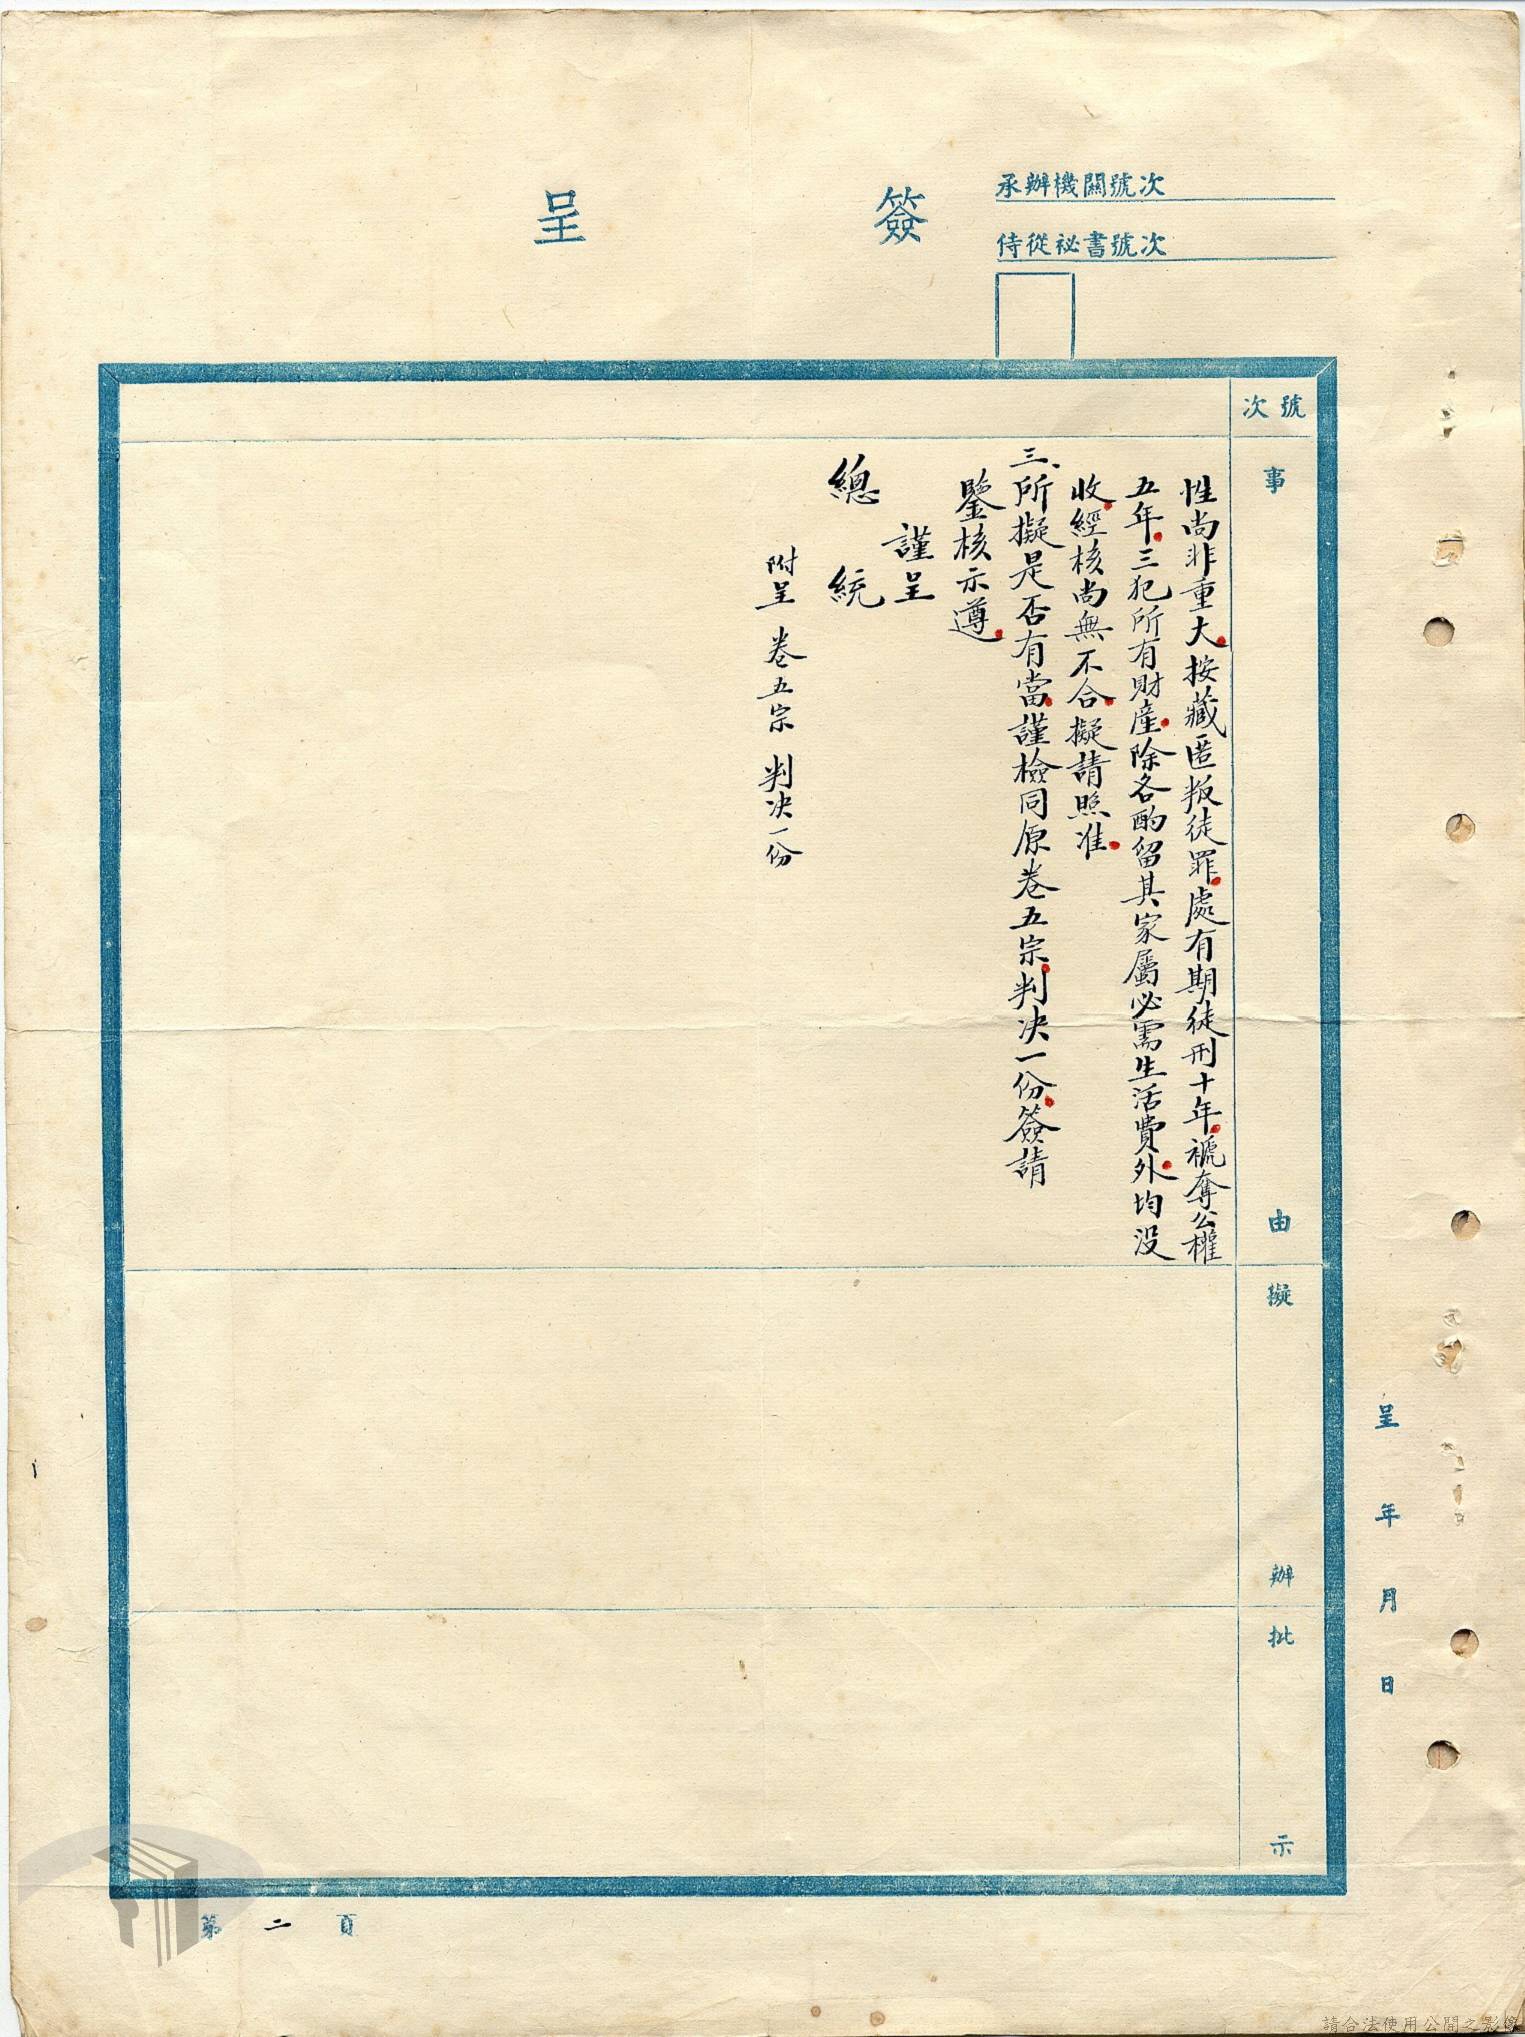 簽呈
承辦機關號次
侍從祕書號次
號次
事由
擬辦
批示
性尚非重大按藏匿叛徒罪處有期徒刑十年褫奪公權
五年三犯所有財產除各酌留其家屬必需生活費外均沒
收經核尚無不合擬請照准
三、所擬是否有當謹檢同原卷五宗判決一份簽請
鑒核示遵
謹呈
總統
附呈 卷五宗 判決一份
呈 年 月 日
第二頁
請合法使用公開之影像